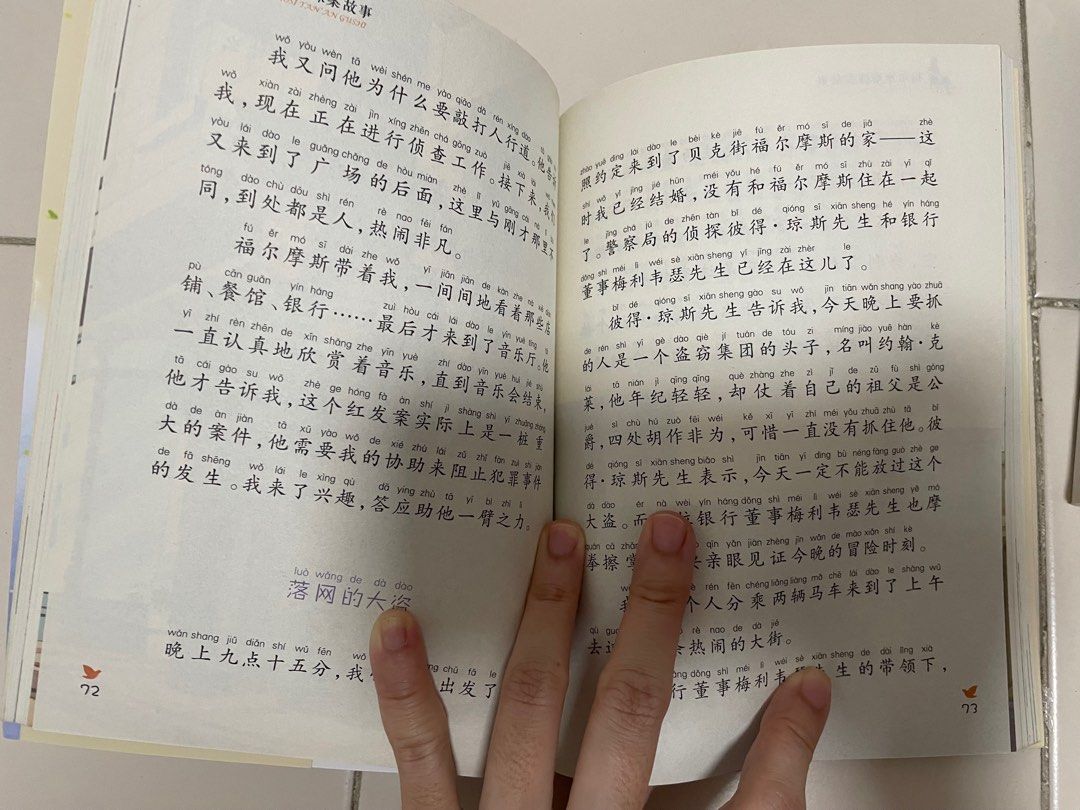 案故事
TAN'AN GUSHI
wǒ yòu wèn tā wèi shén me yào qiāo dǎ rén xíng dào
我又问他为什么要敲打人行道。他告
wǒ xiàn zài zhèng zài jìn xíng zhēn chá gōng zuò jiē xià lái
我，现在正在进行侦查工作。接下来，我们
yòu lái dào le guǎng chǎng de hòu miàn zhè lǐ yǔ gāng cái nà lǐ bù
又来到了广场的后面，这里与刚才那里不
tóng dào chù dōu shì rén rè nao fēi fán
同，到处都是人，热闹非凡。
fú ěr mó sī dài zhe wǒ yī jiān jiān de kàn zhe nà xiē diàn
福尔摩斯带着我，一间间地看着那些店
pù cān guǎn yín háng zuì hòu cái lái dào le yīn yuè tīng tā
铺、餐馆、银行……最后才来到了音乐厅。他
yī zhí rèn zhēn de xīn shǎng zhe yīn yuè zhí dào yīn yuè huì jié shù
一直认真地欣赏着音乐，直到音乐会结束，
tā cái gào su wǒ zhè ge hóng fà àn shí jì shàng shì yī zhuāng zhòng
他才告诉我，这个红发案实际上是一桩重
dà de àn jiàn tā xū yào wǒ de xié zhù lái zǔ zhǐ fàn zuì shì jiàn
大的案件，他需要我的协助来阻止犯罪事件
de fā shēng wǒ lái le xìng qù dā yìng zhù tā yī bì zhī lì
的发生。我来了兴趣，答应助他一臂之力。
luò wǎng de dà dào
落网的大盗
wǎn shang jiǔ diǎn shí wǔ fēn wǒ chū fā le
晚上九点十五分，我 出发了
72
zhào yuē dìng lái dào le bèi kè jiē fú ěr mó sī de jiā zhè
照约定来到了贝克街福尔摩斯的家——这
shí wǒ yǐ jīng jié hūn méi yǒu hé fú ěr mó sī zhù zài yī qǐ
时我已经结婚，没有和福尔摩斯住在一起
le jǐng chá jú de zhēn tàn bǐ dé qióng sī xiān sheng hé yín háng
了。警察局的侦探彼得·琼斯先生和银行
dǒng shì méi lì wéi sè xiān sheng yǐ jīng zài zhèr le
董事梅利韦瑟先生已经在这儿了。
bǐ dé qióng sī xiān sheng gào su wǒ jīn tiān wǎn shang yào zhuā
彼得·琼斯先生告诉我，今天晚上要抓
de rén shì yī gè dào qiè jí tuán de tóu zi míng jiào yuē hàn kè
的人是一个盗窃集团的头子，名叫约翰·克
lái tā nián jì qīng qīng què zhàng zhe zì jǐ de zǔ fù shì gōng
莱，他年纪轻轻，却仗着自己的祖父是公
jué sì chù hú zuò fēi wéi kě xī yī zhí méi yǒu zhuā zhù tā bǐ
爵，四处胡作非为，可惜一直没有抓住他。彼
dé qióng sī xiān sheng biǎo shì jīn tiān yī dìng bù néng fàng guò zhè ge
得·琼斯先生表示，今天一定不能放过这个
dà dào ér nà wèi yín háng dǒng shì méi lì wéi sè xiān sheng yě mó
大盗。而 银行董事梅利韦瑟先生也摩
quán cā zhǎng qīn yǎn jiàn zhèng jīn wǎn de mào xiǎn shí kè
拳擦掌 亲眼见证今晚的冒险时刻。
rén fēn chéng liǎng liàng mǎ chē lái dào le shàng wǔ
我 个人分乘两辆马车来到了上午
qù rè nao de dà jiē
去 热闹的大街。
háng dǒng shì méi lì wéi sè xiān sheng de dài lǐng xià
行董事梅利韦瑟先生的带领下，
73